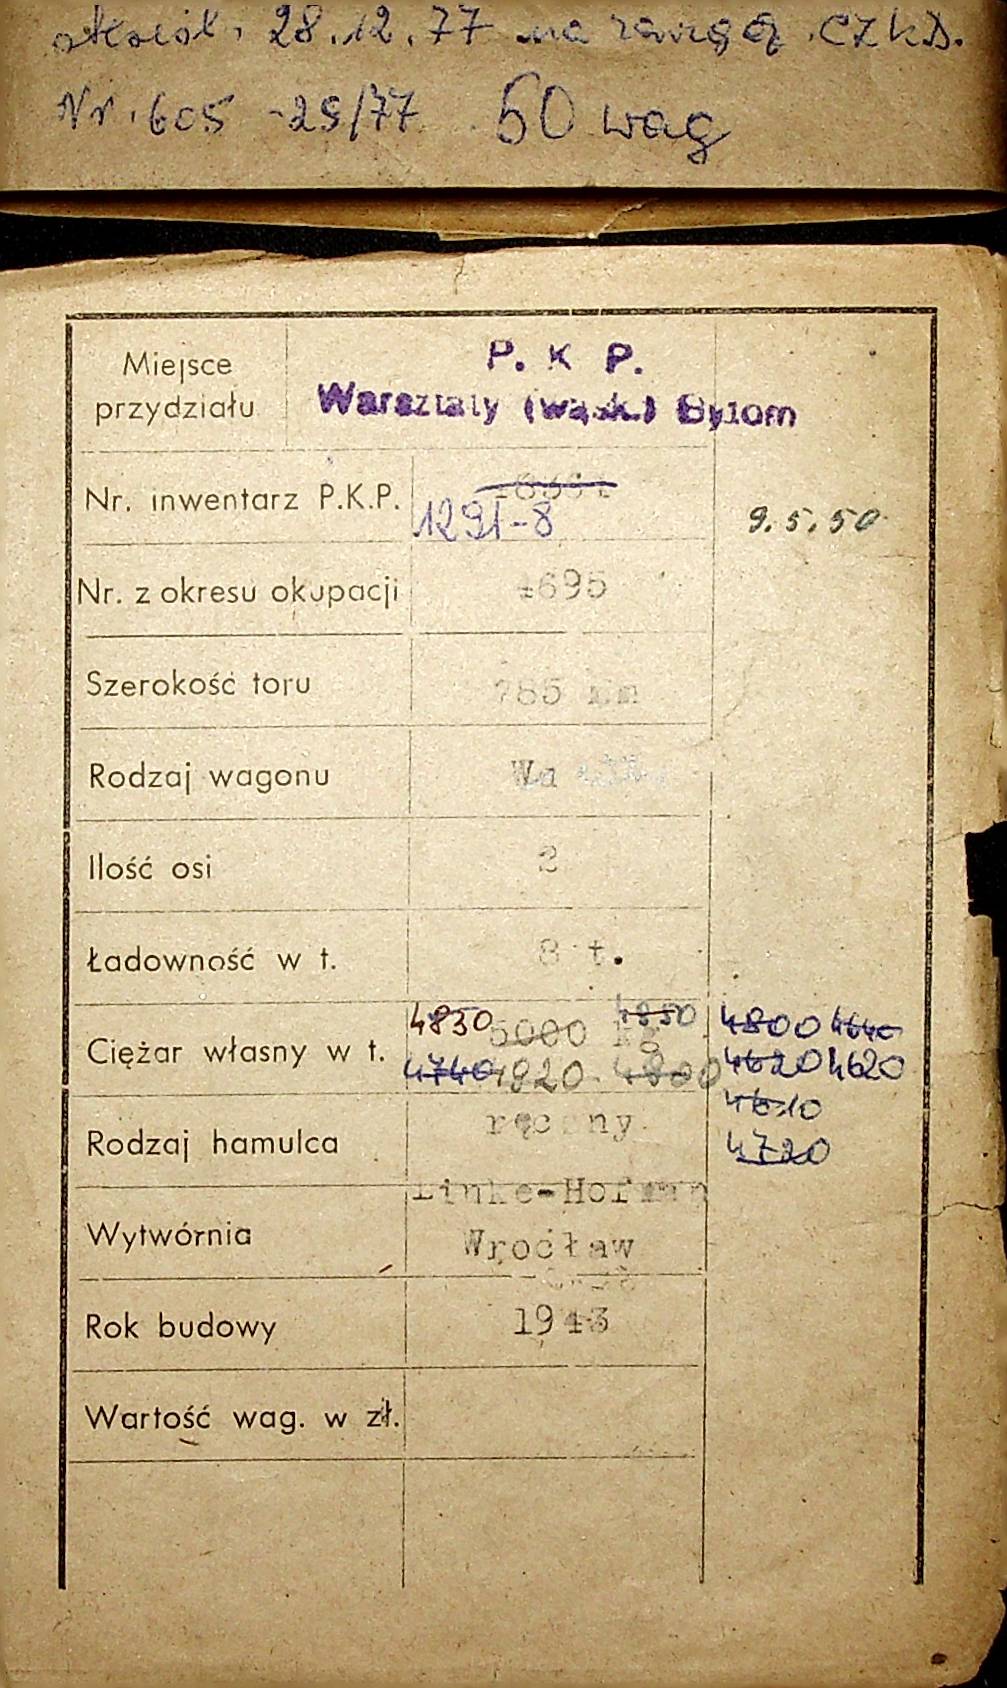 28.12.77 na
Nr. 605 -25/77 50 wag
Miejsce przydziału
P. K P.
Warsztaty (wąsk.) Bytom
Nr. inwentarz P.K.P.
1291-8
9.5.50
Nr. z okresu okupacji 1695
Szerokość toru 785 mm
Rodzaj wagonu Wa
Ilość osi 2
Ładowność w t. 8 t.
4830 5000 kg 4850 4800 4640
Ciężar własny w t. 4740 4820 4800 4620 4620
4610
Rodzaj hamulca ręczny 4720
Linke-Hofman
Wytwórnia Wrocław
Rok budowy 1943
Wartość wag. w zł.